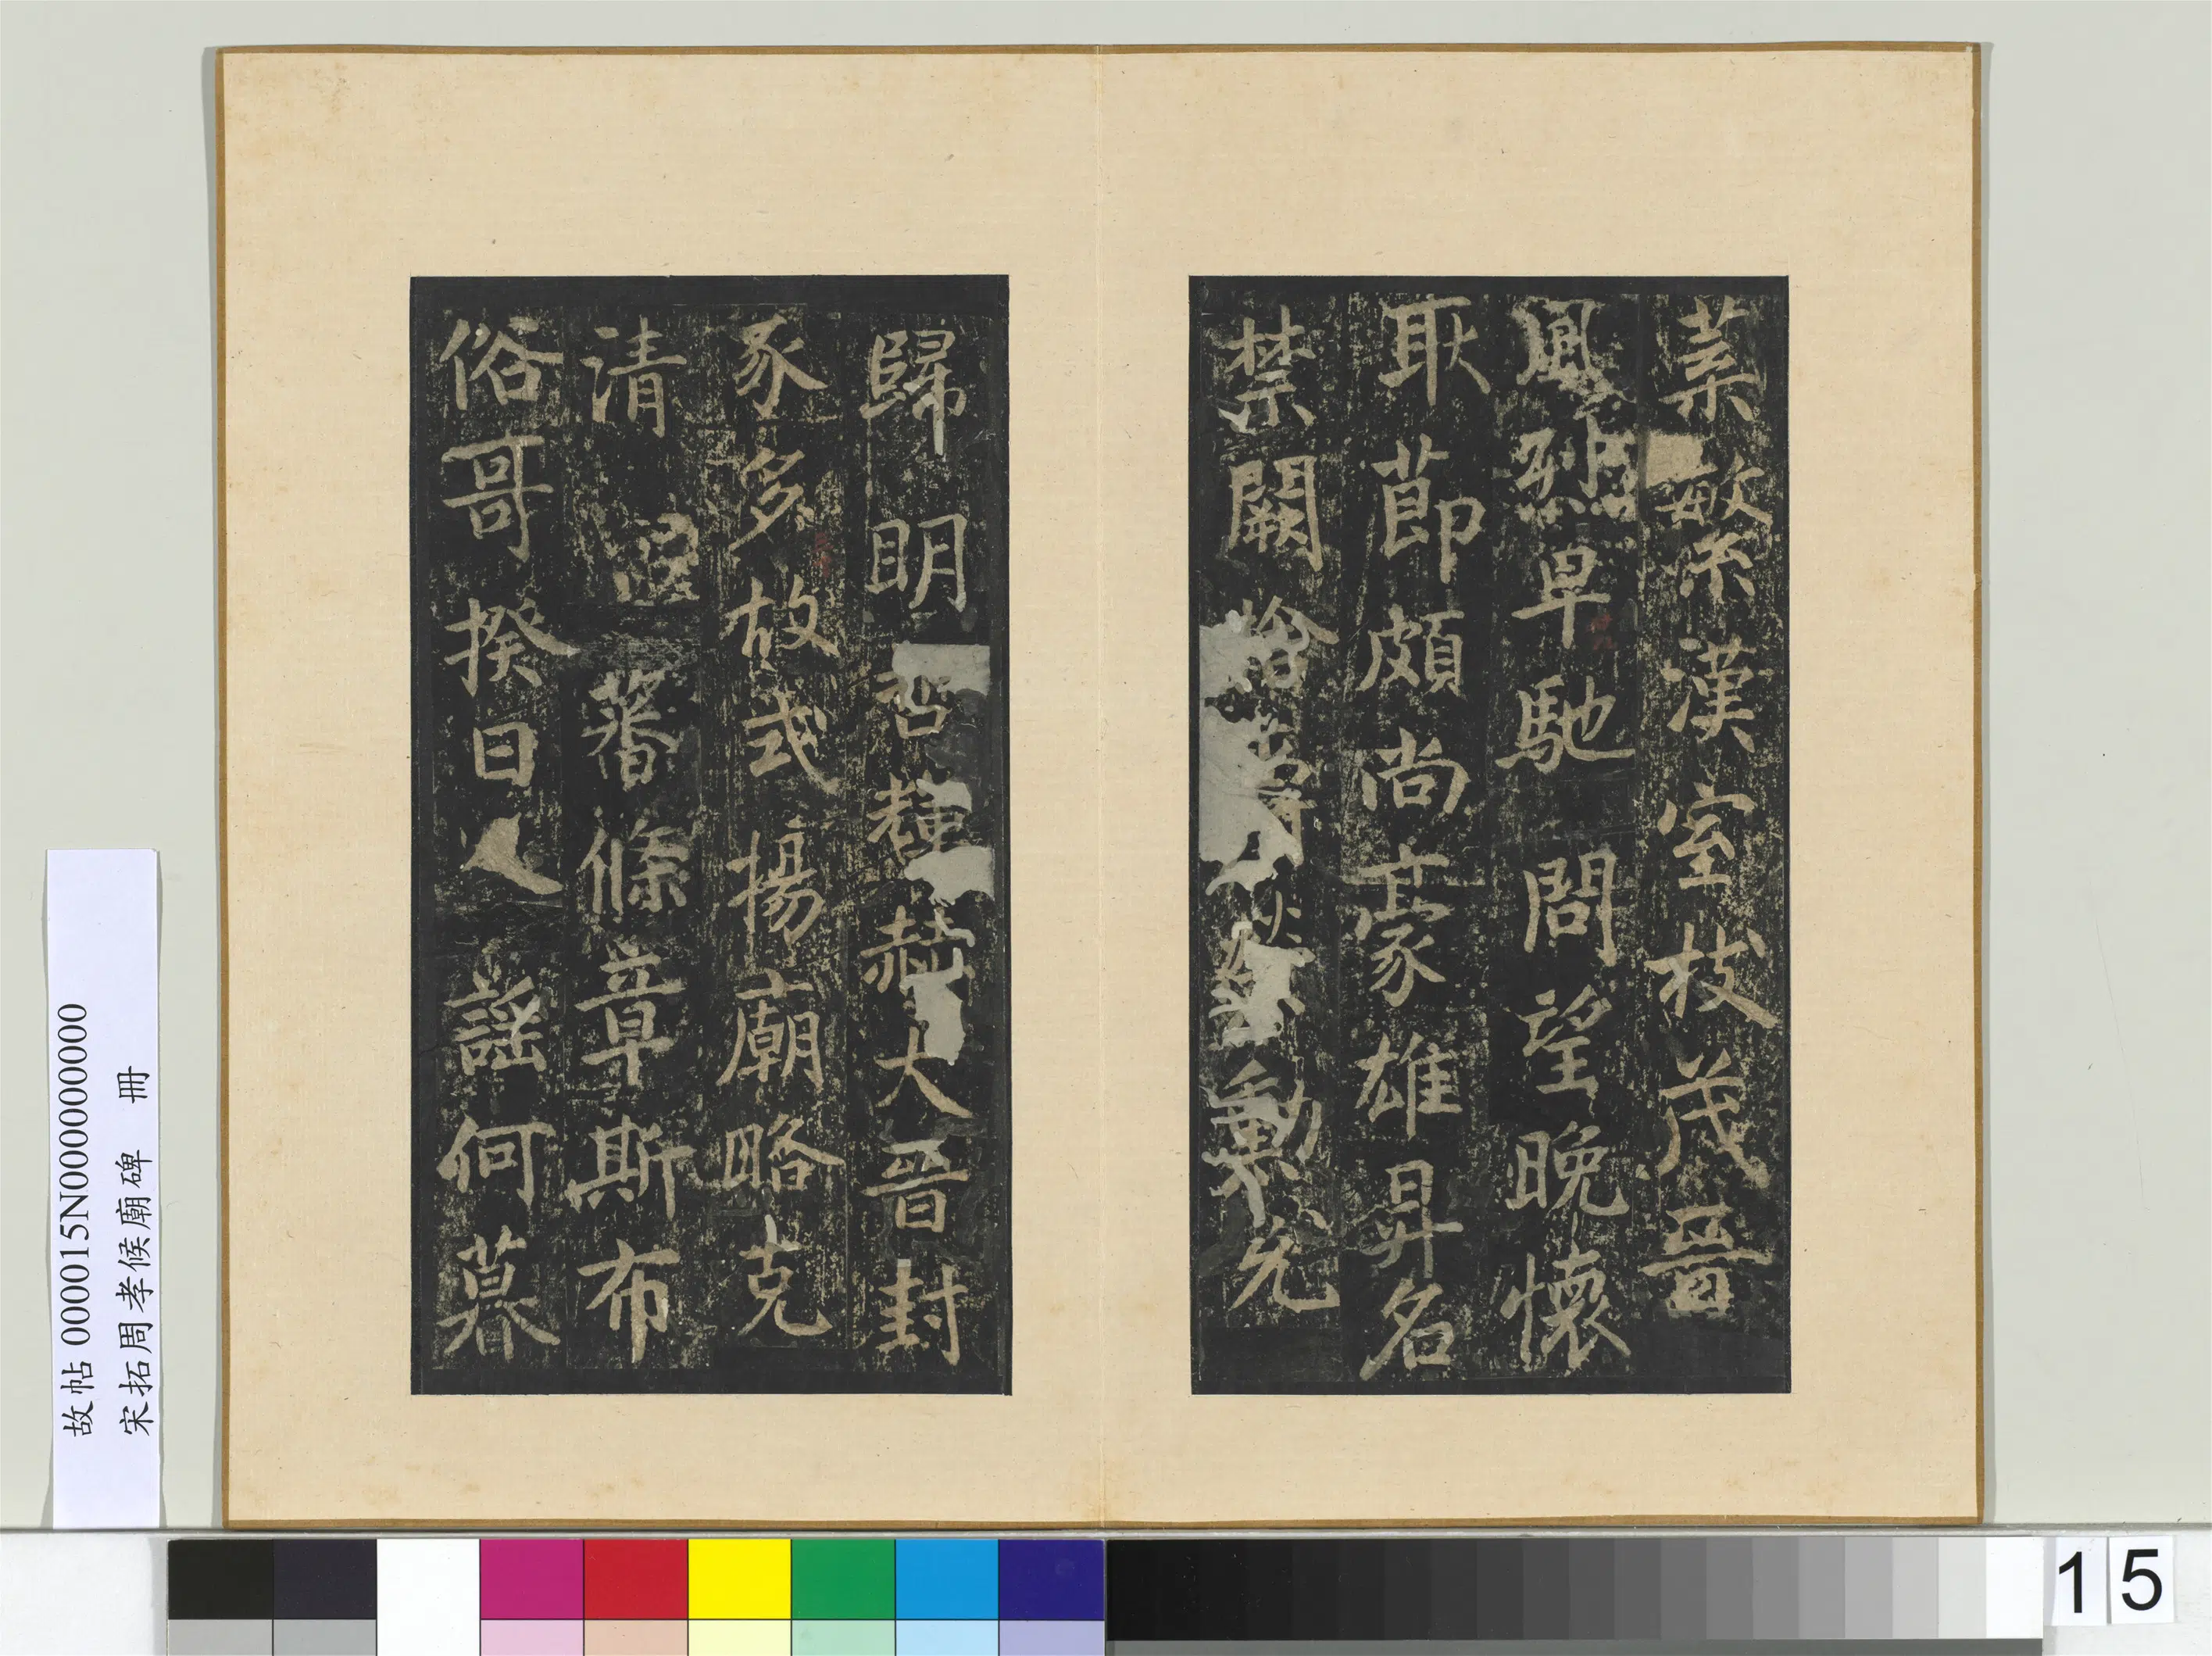 菜繁漢室枝茂晉
風烈早馳問望晚懷
耿莭頗尚豪雄昇名
禁闕動允
歸明哲輝赫大晉封
豕多故式揚廟略克
清蕃條章斯布
俗哥揆日人謡何暮
故帖 000015N000000000
宋拓周孝侯廟碑 冊
15